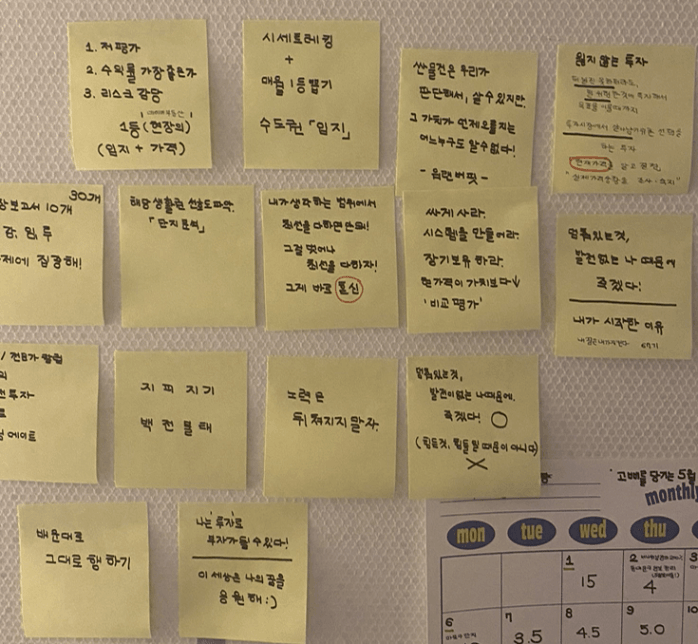 1. 저평가
2. 수익률 가장 좋은가
3. 리스크 감당
1등 (현장의)
(입지 + 가격)
시세트레킹
+
매월 1등뽑기
수도권 「입지」
산물건은 우리가
판단해서, 살 수 있지만
그 가치가 언제 오를지는
어느누구도 알 수 없다!
- 워런버핏 -
잃지 않는 투자
30개
보고서 10개
감, 임, 투
제에 집중해!
해당 생활권 선호도 파악.
「단지분석」
내가 생각하는 범위에서
최선을 다하면 안돼!
그걸 벗어나
최선을 다하자!
그게 바로 혼신
싸게 사라.
시스템을 만들어라.
장기보유 하라.
현가격이 가치보다↓
'비교평가'
멈춰있는것,
발전없는 나 때문에
죽겠다!
내가 시작한 이유
/ 전문가 칼럼
투자
메이트
지피지기
백전불패
노력은
뒤쳐지지 말자.
멈춰있는것,
발전이없는 나때문에.
죽겠다! ○
(힘든것, 힘들일 때문이 아니다)
X
배운대로
그대로 행하기
나는 투자로
부자가 될 수 있다!
이 세상은 나의 꿈을
응원해 :)
고삐를 당기는 5월
monthly
mon tue wed thu
1 2 3
15 4
6 7 8 9 10
3.5 4.5 5.0